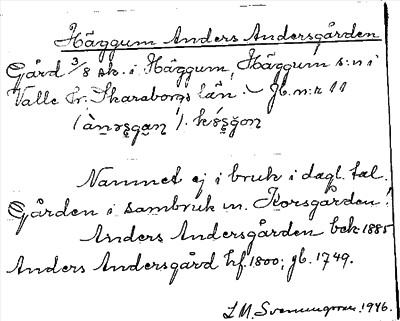 Häggum Anders Andersgården
Gård 3/8 sk. i Häggum, Häggum s:n i
Valle hr. Skaraborgs län. – Jb. n:r 11
Namnet ej i bruk i dagl. tal.
Gården i sambruk m. Korsgården!
Anders Andersgården bek 1885
Anders Andersgård hf. 1800; jb. 1749.
1946.